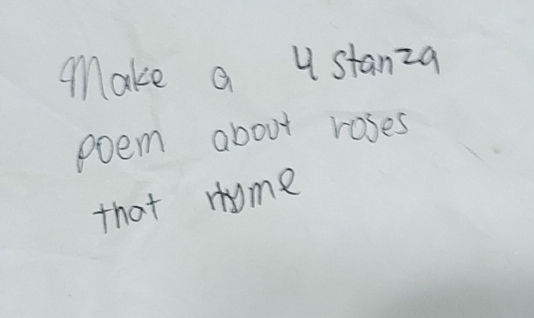 Make a 4 stanza
poem about roses
that rhyme